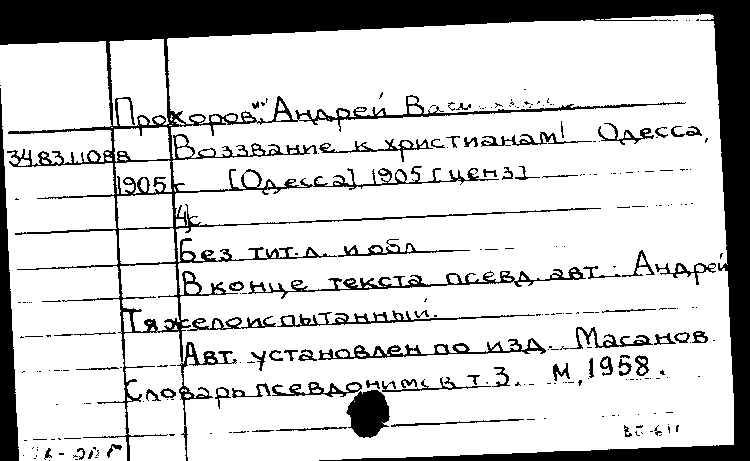 Прохоров, Андрей
34.83.1.1088 Воззвание к христианам! Одесса,
1905 г [Одесса], 1905 [ценз]
4 с
Без тит. л. и обл
В конце текста псевд. авт.: Андрей
Тяжелоиспытанный.
Авт. установлен по изд. Масанов
Словарь псевдонимов т. 3. М, 1958.